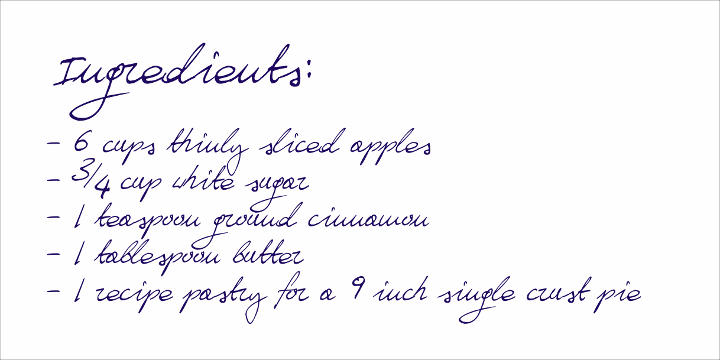 Ingredients:
- 6 cups thinly sliced apples
- 3/4 cup white sugar
- 1 teaspoon ground cinnamon
- 1 tablespoon butter
- 1 recipe pastry for a 9 inch single crust pie